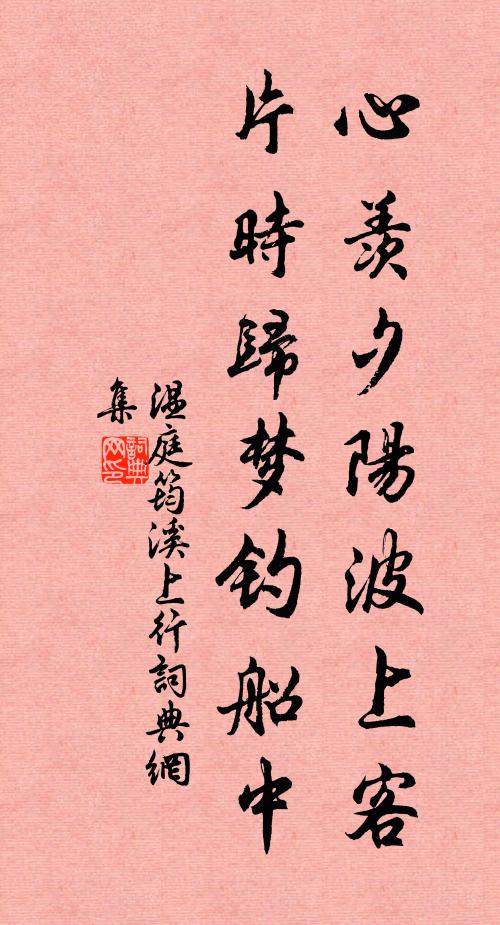 心羨夕陽波上客
片時歸梦钓船中
温庭筠溪上行詞典網
集
詞典
网印